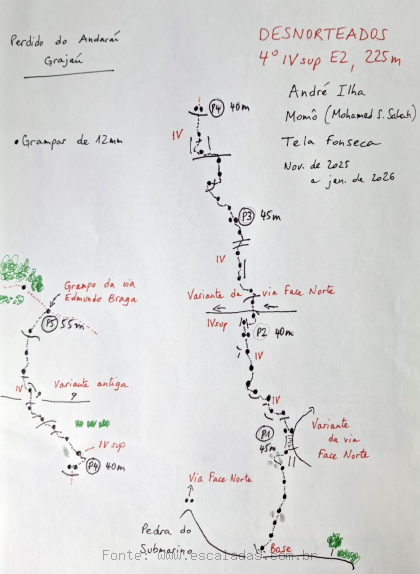 Perdido do Andaraí
Grajaú
DESNORTEADOS
4º IVsup E2, 225m
André Ilha
Momô (Mohamed S. Sabah)
Tela Fonseca
Nov. de 2025
a jan. de 2026
• Grampos de 12mm
P4 40m
IV
P3 45m
IV
Variante da via Face Norte
IVsup
P2 40m
IV
IV
P1
45m
Variante
da via
Face Norte
Grampo da via
Edmundo Braga
P5 55m
IV
Variante antiga
?
IV sup
P4 40m
Via Face Norte
Pedra do
Submarino
Base
Fonte: www.escaladas.com.br